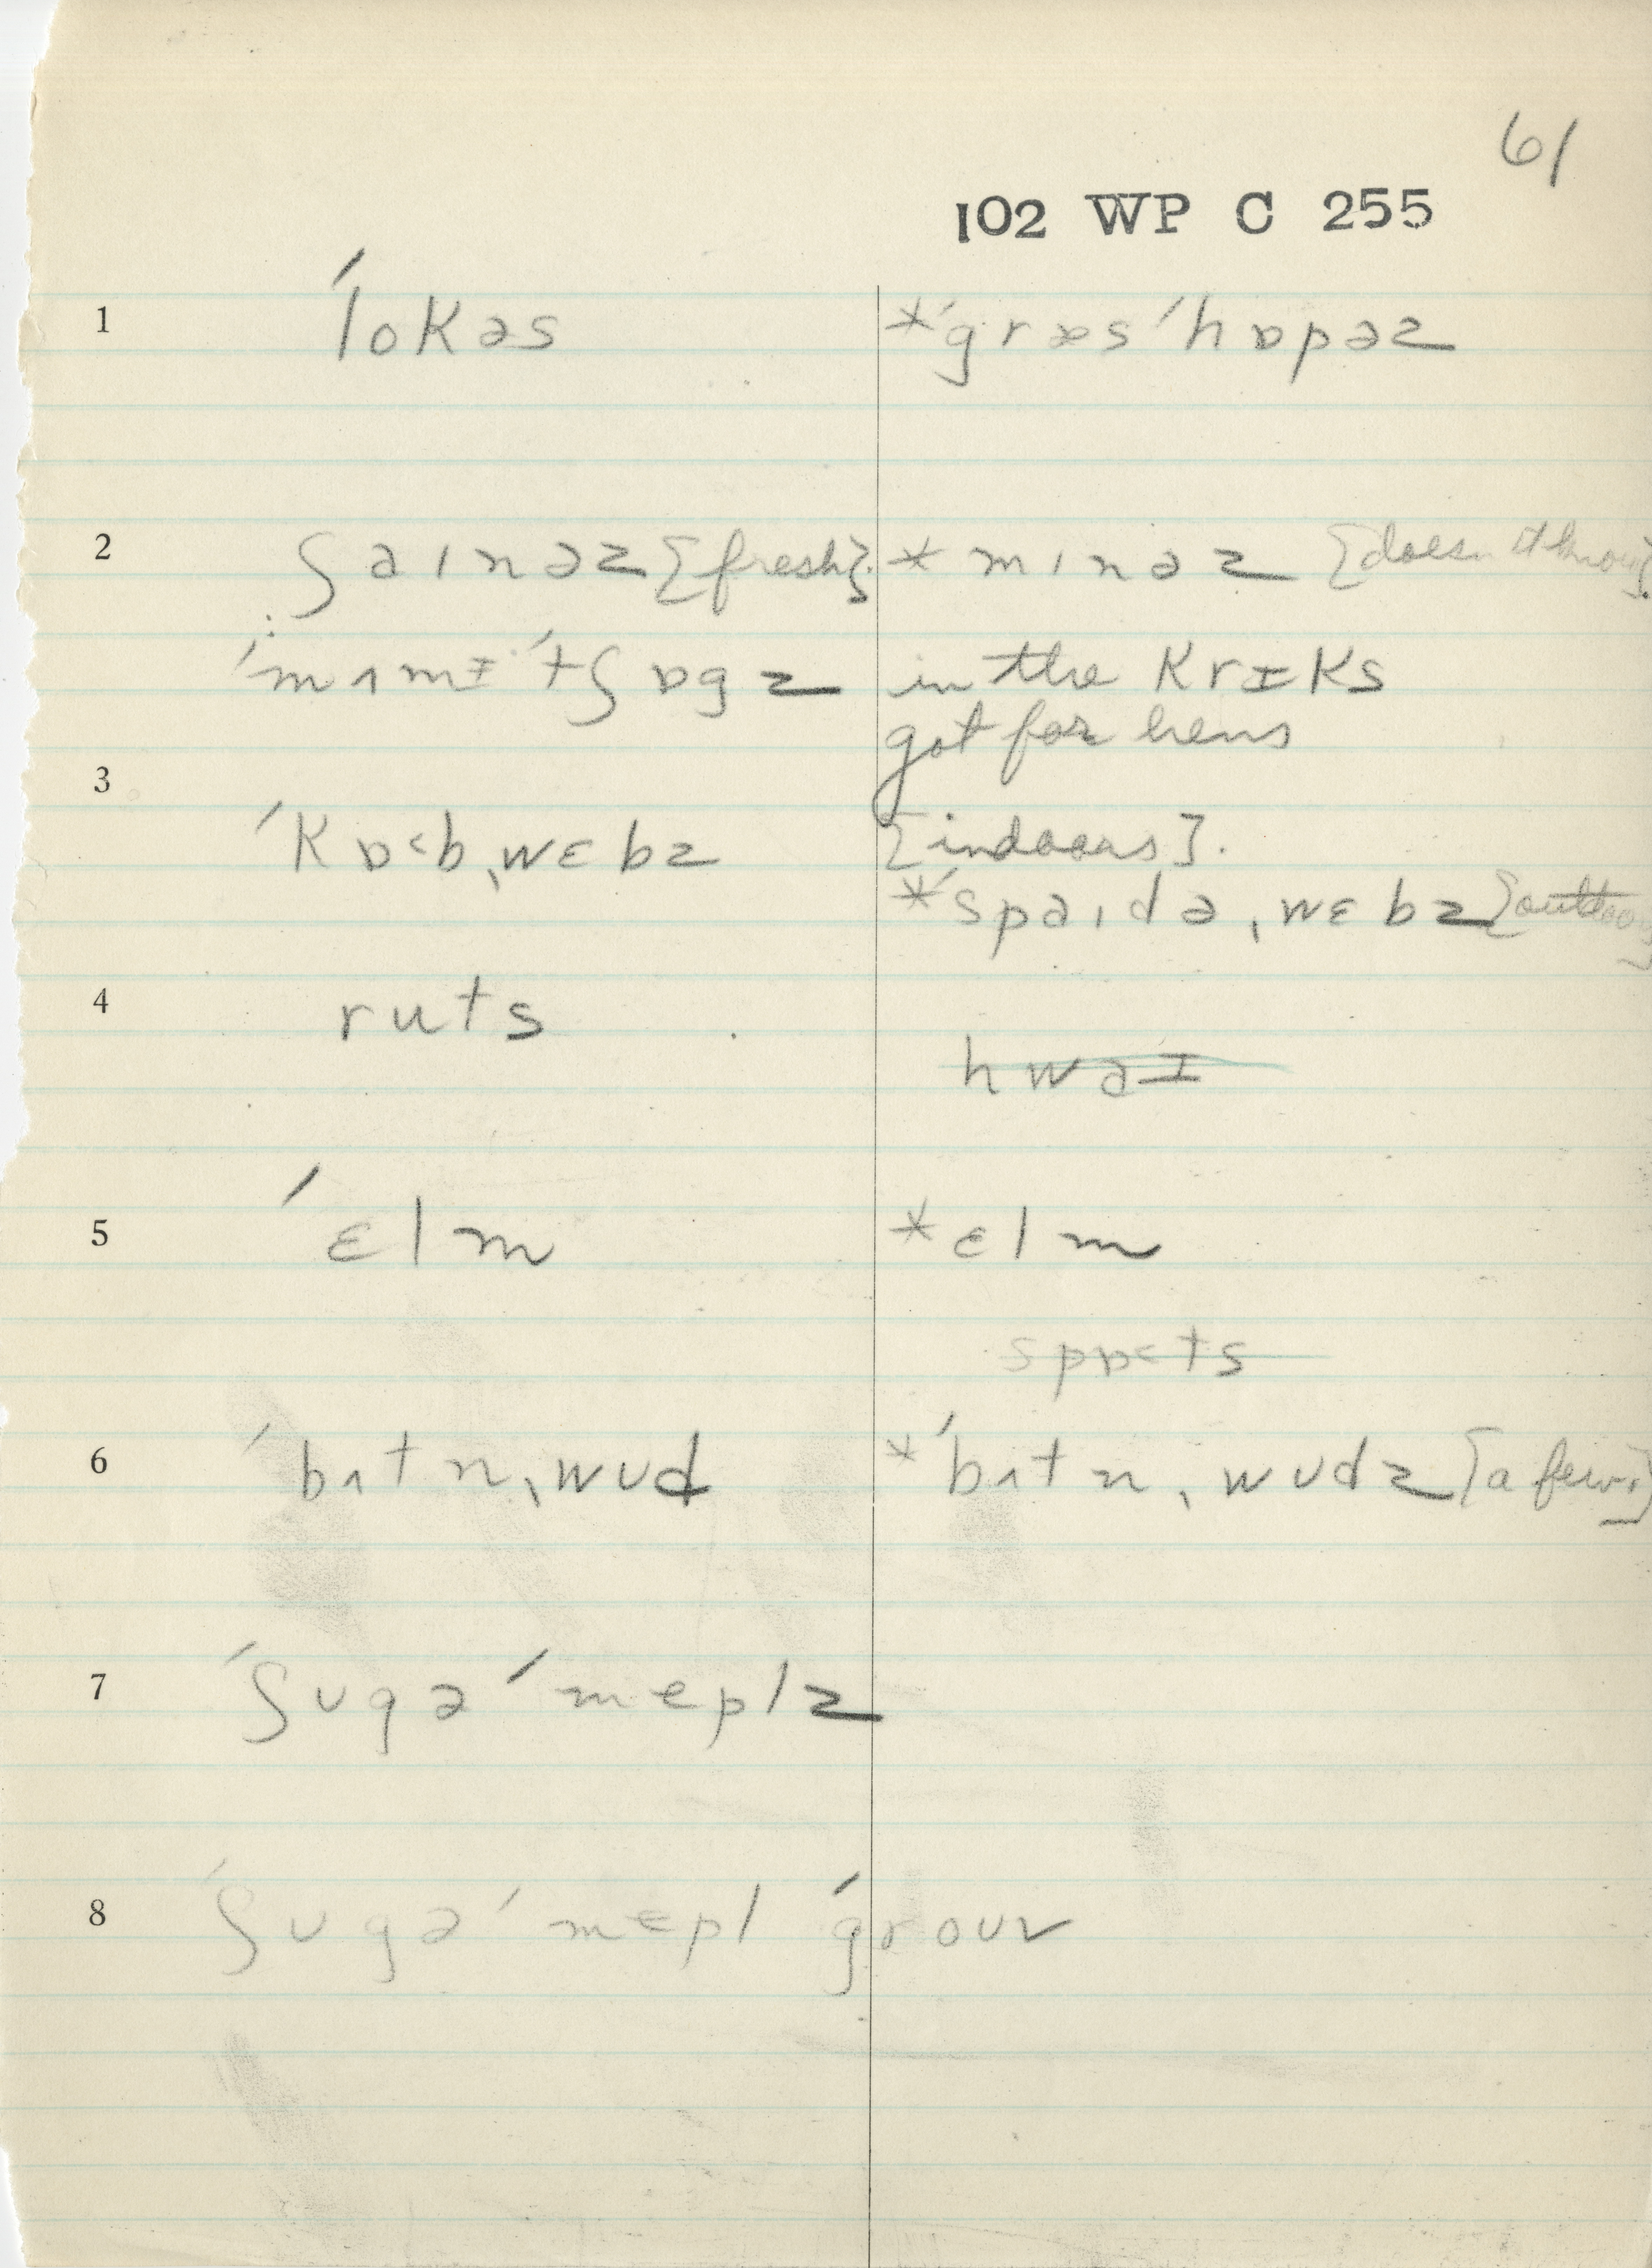 61
102 WP C 255
1 ˈlokəs *ˈgræsˈhɒpəz
2 ʃaɪnəz {fresh}. *mɪnəz {doesn't know}.
ˈmʌmɪˈtʃɒgz in the krɪks
got for hens
3
ˈkɒ<b ˌwɛbz {indoors}.
*ˈspaɪdə ˌwɛbz {outdoors}
4 ruts
hwəɪ
5 ˈɛlm *ɛlm
spɒ<ts
6 ˈbʌtn ˌwʊd *ˈbʌtn ˌwʊdz {a few.}
7 ˈʃʊgə ˈmeplz
8 ˈʃʊgə ˈmepl ˈgroʊv